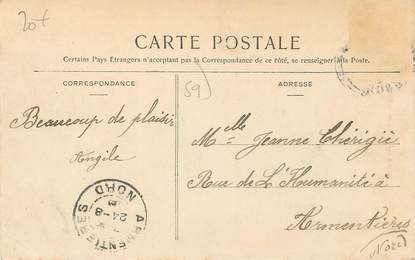 20+
CARTE POSTALE
Certains Pays Étrangers n'acceptant pas la Correspondance de ce côté, se renseigner à la Poste.
CORRESPONDANCE
ADRESSE
59
Beaucoup de plaisir
Angèle
Melle Jeanne Chérigié
Rue de L'Houmanité à
Armentières
Nord
ARMENTIERES
24-8
NORD